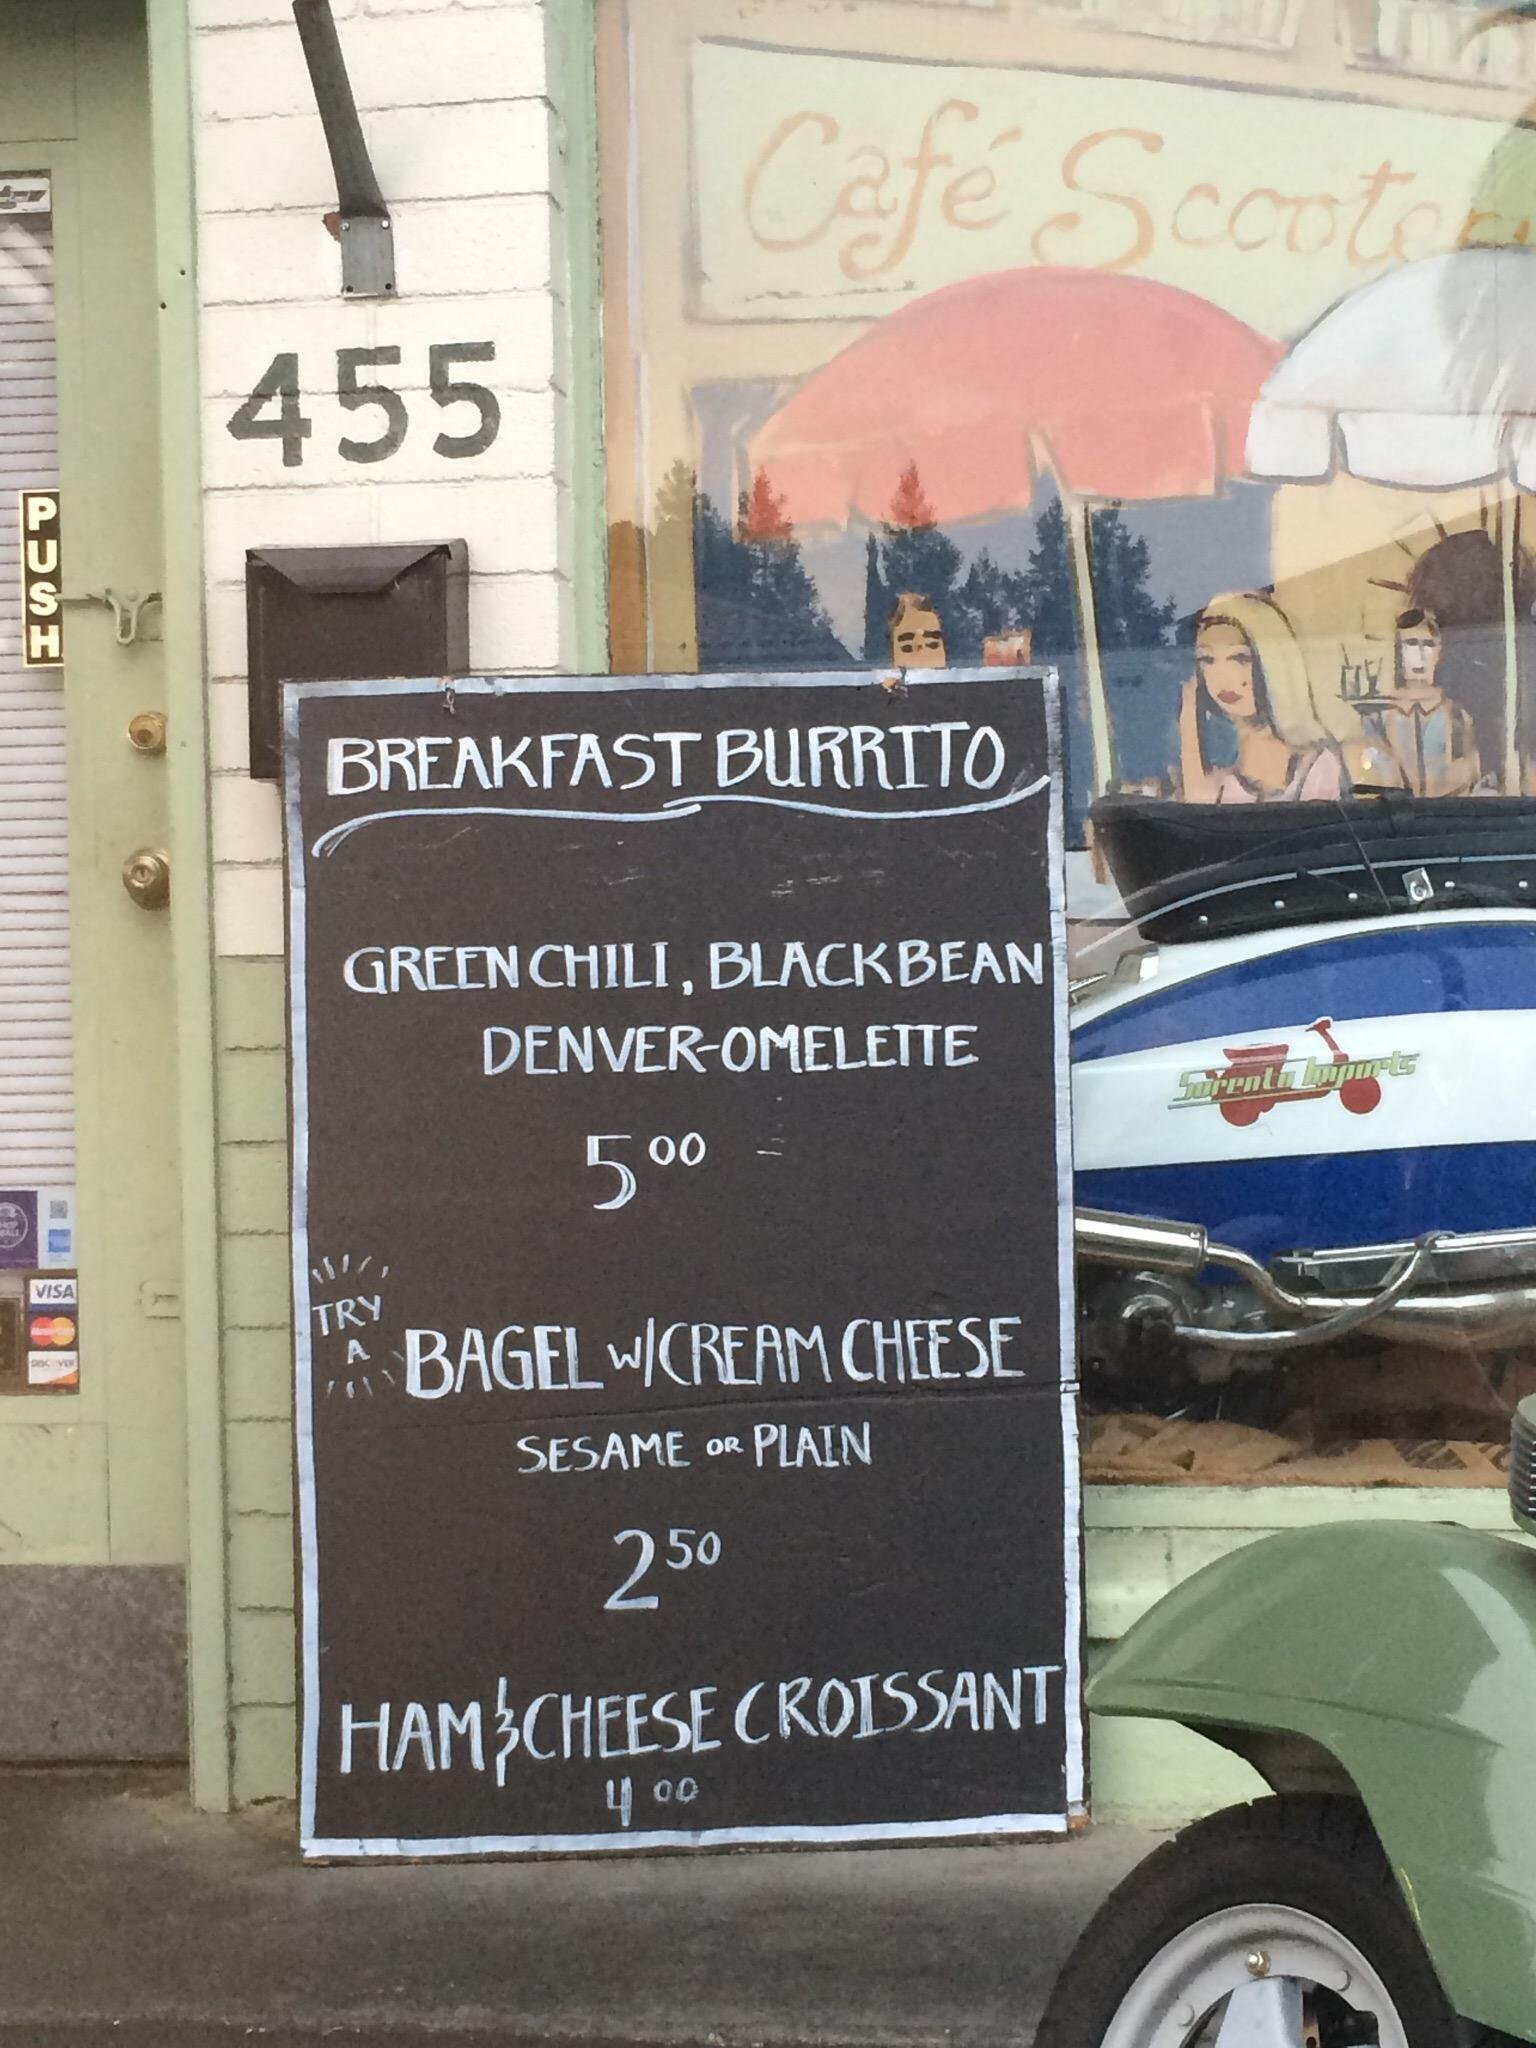 Café Scooteri
455
PUSH
BREAKFAST BURRITO
GREEN CHILI, BLACK BEAN
DENVER-OMELETTE
5 00
TRY
A
BAGEL W/CREAM CHEESE
SESAME OR PLAIN
2 50
HAM & CHEESE CROISSANT
4 00
Sorento Imports
VISA
MasterCard
DISCOVER